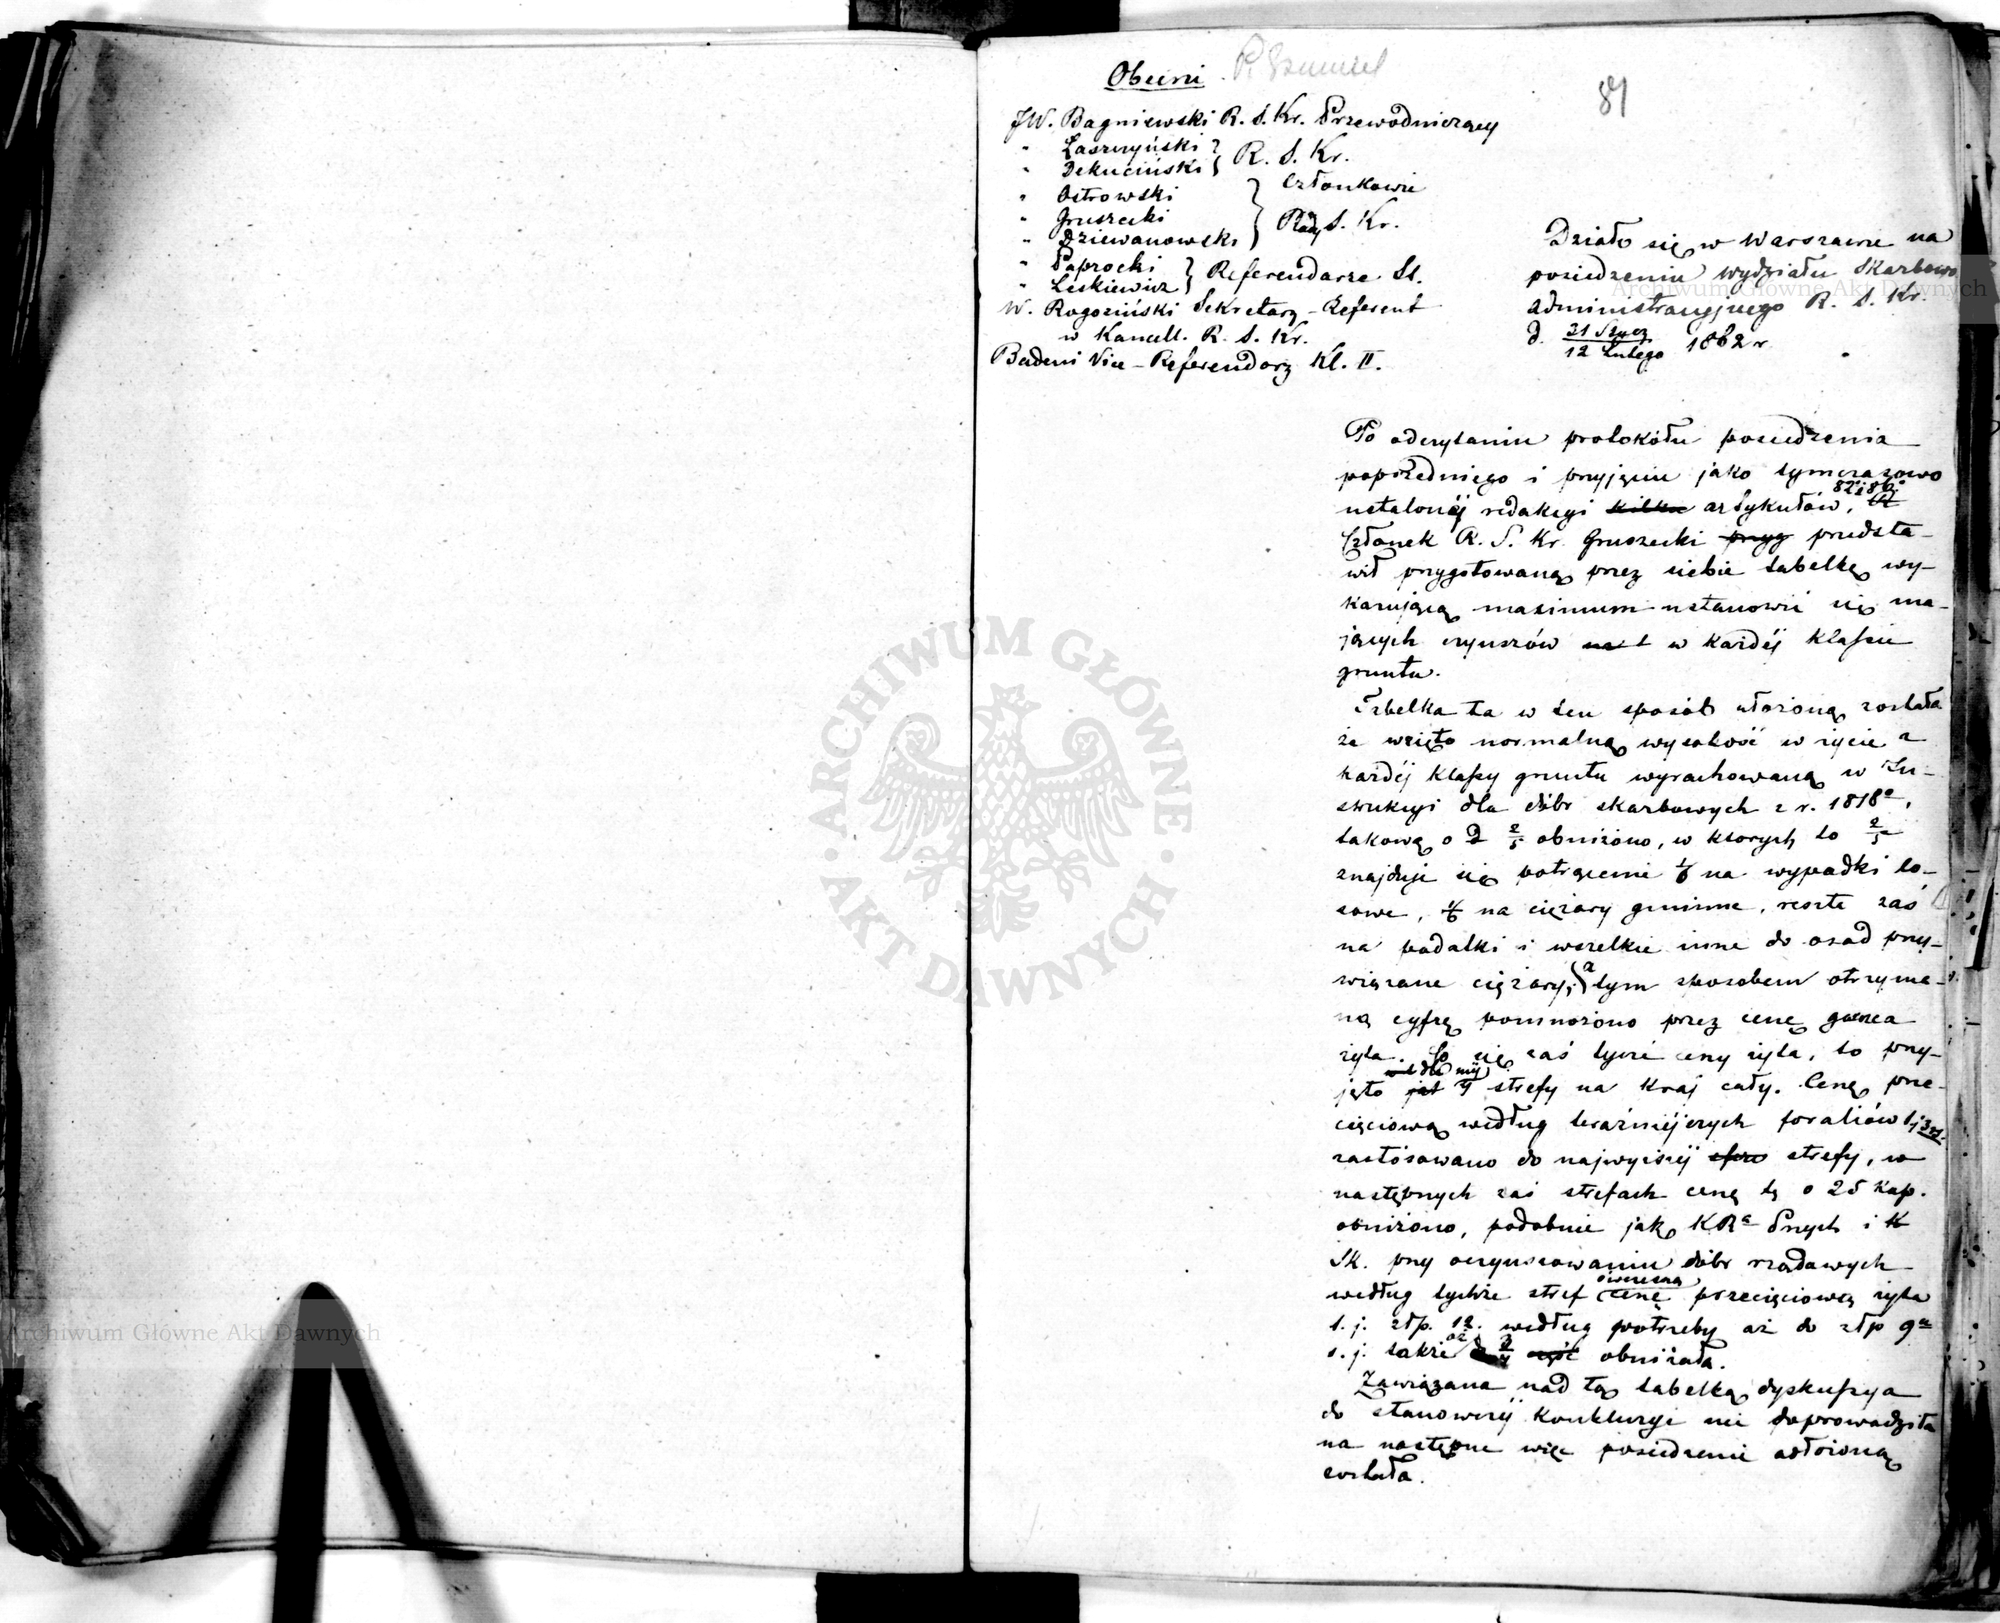 Obecni
87
JW. Bagniewski R. S. Kr. Przewodniczący
" Łaszczyński } R. S. Kr.
" Dekuciński
" Ostrowski } Członkowie
" Gruszecki Rady S. Kr.
" Dziewanowski
" Paprocki } Referendarze St.
" Leskiewicz
W. Rogoziński Sekretarz-Referent
w Kancell. R. S. Kr.
Badeni Vice-Referendarz Kl. II.
Działo się w Warszawie na
posiedzeniu wydziału Skarbowo
administracyjnego R. S. Kr.
d. 31 Stycz / 12 Lutego 1862 r
Po odczytaniu protokółu posiedzenia
poprzedniego i przyjęciu jako tymczasowo
ustalonéj redakcyi kilku artykułów, 82 i 86
Członek R. S. Kr. Gruszecki przyg przedsta-
wił przygotowaną przez siebie tabelkę wy-
kazującą maximum ustanowić się ma-
jących czynszów w każdéj klassie
gruntu.
Tabelka ta w ten sposób ułożoną została
że wzięto normalną wysokość w życie z
każdéj klassy gruntu wyrachowaną w In-
strukcyi dla dóbr skarbowych z r. 1818º,
takową o 2/5 obniżono, w których to 2/5
znajduje się potrącenie 1/6 na wypadki lo-
sowe, 1/6 na ciężary gminne, resztę zaś
na podatki i wszelkie inne do osad przy-
wiązane ciężary; a tym sposobem otrzyma-
ną cyfrę pomnożono przez cenę garnca
żyta. Co się zaś tycze ceny żyta, to przy-
jęto 4 strefy na Kraj cały. Cenę prze-
cięciową według teraźniéjszych foraliów tj
zastósowano do najwyższéj sfer strefy, w
następnych zaś strefach cenę tę o 25 kop.
obniżono, podobnie jak KRz Pnych i K
Sk. przy oczynszowaniu dóbr rządowych
według tychże stref ówczesną cenę przecięciową żyta
t. j. złp. 12. według potrzeby aż do złp 9
t. j. także aż obniżała.
Zawiązana nad tą tabelką dyskussya
do stanowczéj konkluzyi nie doprowadziła
na następne więc posiedzenie odłożoną
została.
Archiwum Główne Akt Dawnych
Archiwum Główne Akt Dawnych
ARCHIWUM GŁÓWNE · AKT DAWNYCH ·